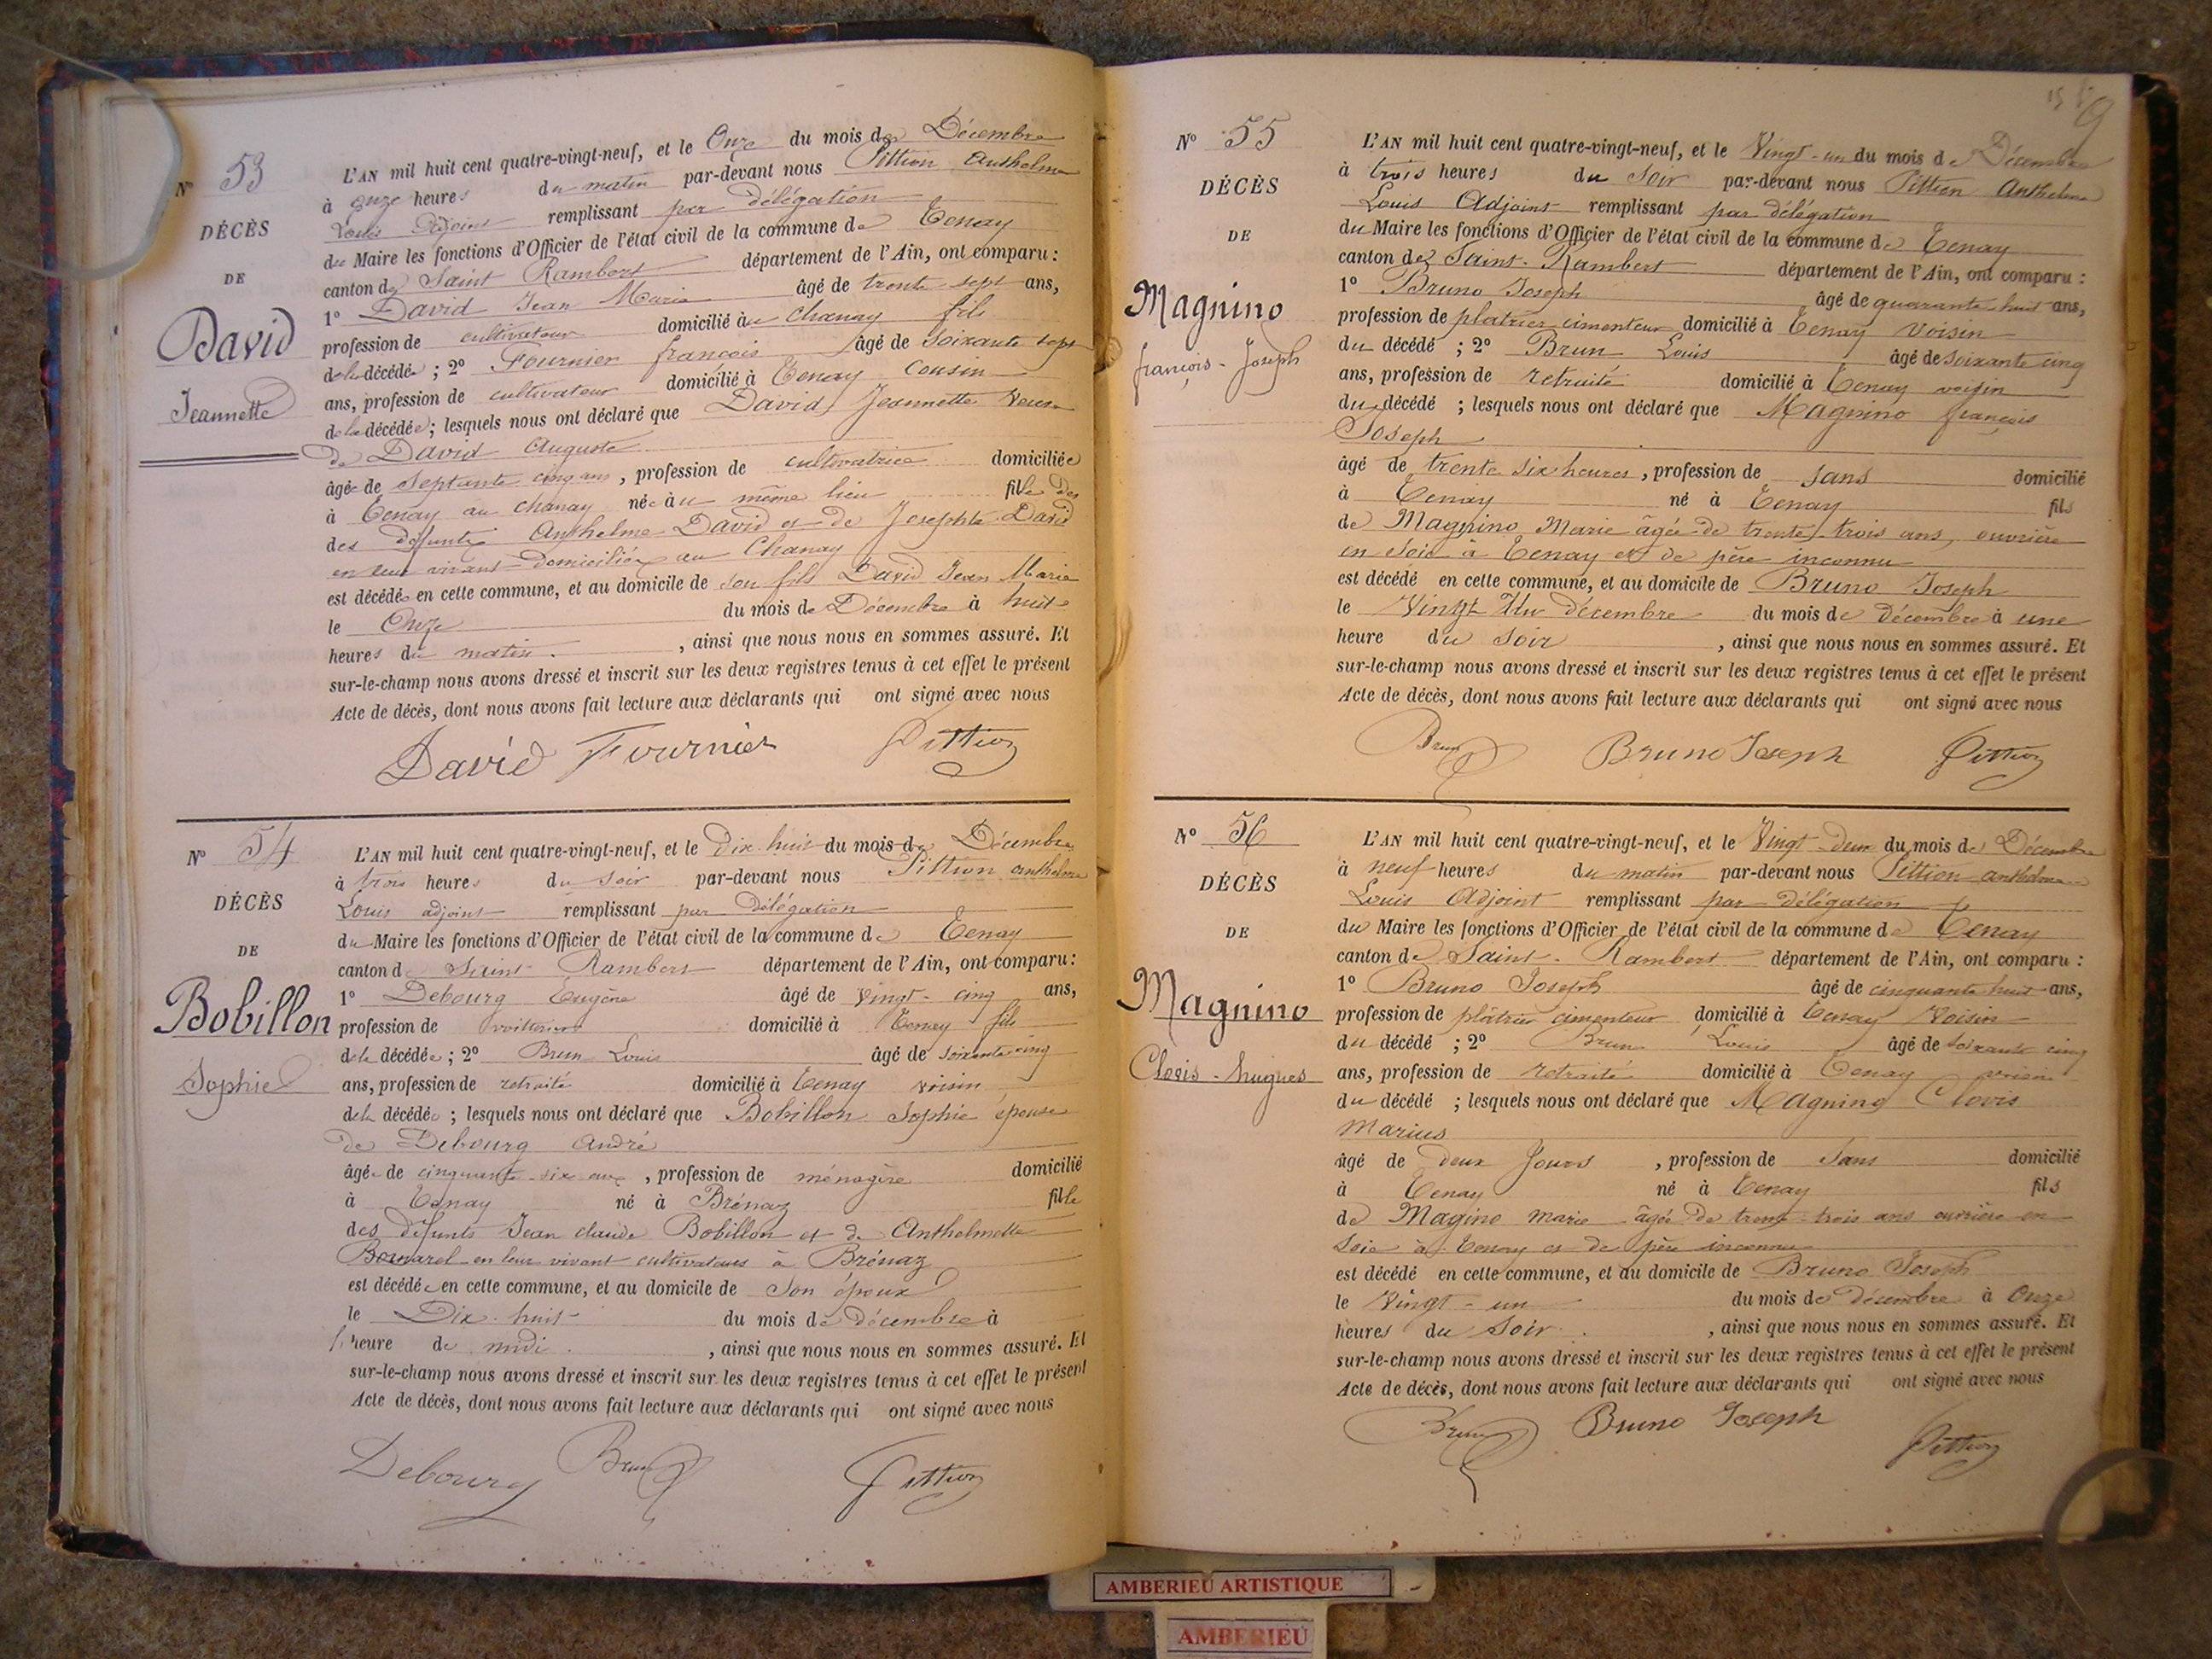 N° 53
DÉCÈS
DE
David
Jeannette
L'AN mil huit cent quatre-vingt-neuf, et le Onze du mois de Décembre
à onze heures du matin par-devant nous Pittion Anthelme
Louis Adjoint remplissant par délégation
du Maire les fonctions d'Officier de l'état civil de la commune de Tenay
canton de Saint Rambert département de l'Ain, ont comparu :
1° David Jean Marie âgé de trente sept ans,
profession de cultivateur domicilié au Chanay fils
de la décédée ; 2° Fournier françois âgé de soixante sept
ans, profession de cultivateur domicilié à Tenay Cousin
de la décédée ; lesquels nous ont déclaré que David Jeannette Veuve
de David Auguste
âgée de septante cinq ans, profession de cultivatrice domiciliée
à Tenay au Chanay née au même lieu fille des
des défunts Anthelme David et de Josephte David
en leur vivant domiciliés au Chanay
est décédée en cette commune, et au domicile de son fils David Jean Marie
le Onze du mois de Décembre à huit
heures du matin , ainsi que nous nous en sommes assuré. Et
sur-le-champ nous avons dressé et inscrit sur les deux registres tenus à cet effet le présent
Acte de décès, dont nous avons fait lecture aux déclarants qui ont signé avec nous
David Fournier Pittion
N° 54
DÉCÈS
DE
Bobillon
Sophie
L'AN mil huit cent quatre-vingt-neuf, et le Dix huit du mois de Décembre
à trois heures du soir par-devant nous Pittion anthelme
Louis adjoint remplissant par Délégation
du Maire les fonctions d'Officier de l'état civil de la commune de Tenay
canton de Saint Rambert département de l'Ain, ont comparu :
1° Debourg Eugène âgé de vingt-cinq ans,
profession de voiturier domicilié à Tenay fils
de la décédée ; 2° Brun Louis âgé de soixante cinq
ans, profession de retraité domicilié à Tenay voisin
de la décédée ; lesquels nous ont déclaré que Bobillon Sophie épouse
de Debourg André
âgée de cinquante-six ans, profession de ménagère domicilié
à Tenay né à Brénaz fille
des défunts Jean claude Bobillon et de Anthelmette
en leur vivant cultivateurs à Brénaz
est décédée en cette commune, et au domicile de Son époux
le Dix-huit du mois de décembre à
1 heure de midi , ainsi que nous nous en sommes assuré. Et
sur-le-champ nous avons dressé et inscrit sur les deux registres tenus à cet effet le présent
Acte de décès, dont nous avons fait lecture aux déclarants qui ont signé avec nous
Debourg Brun Pittion
9
N° 55
DÉCÈS
DE
Magnino
françois-Joseph
L'AN mil huit cent quatre-vingt-neuf, et le Vingt-un du mois de Décembre
à trois heures du soir par-devant nous Pittion Anthelme
Louis Adjoint remplissant par délégation
du Maire les fonctions d'Officier de l'état civil de la commune de Tenay
canton de Saint-Rambert département de l'Ain, ont comparu :
1° Bruno Joseph âgé de quarante-huit ans,
profession de platrier cimenteur domicilié à Tenay voisin
du décédé ; 2° Brun Louis âgé de soixante cinq
ans, profession de retraité domicilié à Tenay voisin
du décédé ; lesquels nous ont déclaré que Magnino françois
Joseph
âgé de trente six heures, profession de sans domicilié
à Tenay né à Tenay fils
de Magnino Marie âgée de trente trois ans, ouvrière
en soie à Tenay et de père inconnu
est décédé en cette commune, et au domicile de Bruno Joseph
le Vingt Un décembre du mois de décembre à une
heure du soir , ainsi que nous nous en sommes assuré. Et
sur-le-champ nous avons dressé et inscrit sur les deux registres tenus à cet effet le présent
Acte de décès, dont nous avons fait lecture aux déclarants qui ont signé avec nous
Brun Bruno Joseph Pittion
N° 56
DÉCÈS
DE
Magnino
Clovis-hugues
L'AN mil huit cent quatre-vingt-neuf, et le Vingt-deux du mois de Décembre
à neuf heures du matin par-devant nous Pittion anthelme
Louis Adjoint remplissant par délégation
du Maire les fonctions d'Officier de l'état civil de la commune de Tenay
canton de Saint-Rambert département de l'Ain, ont comparu :
1° Bruno Joseph âgé de cinquante huit ans,
profession de platrier cimenteur domicilié à Tenay Voisin
du décédé ; 2° Brun Louis âgé de soixante cinq
ans, profession de retraité domicilié à Tenay voisin
du décédé ; lesquels nous ont déclaré que Magnino Clovis
Marius
âgé de deux Jours , profession de Sans domicilié
à Tenay né à Tenay fils
de Magino marie âgée de trente-trois ans ouvrière en
soie à Tenay et de père inconnu
est décédé en cette commune, et au domicile de Bruno Joseph
le Vingt-un du mois de décembre à Onze
heures du Soir , ainsi que nous nous en sommes assuré. Et
sur-le-champ nous avons dressé et inscrit sur les deux registres tenus à cet effet le présent
Acte de décès, dont nous avons fait lecture aux déclarants qui ont signé avec nous
Brun Bruno Joseph Pittion
AMBERIEU ARTISTIQUE
AMBERIEU